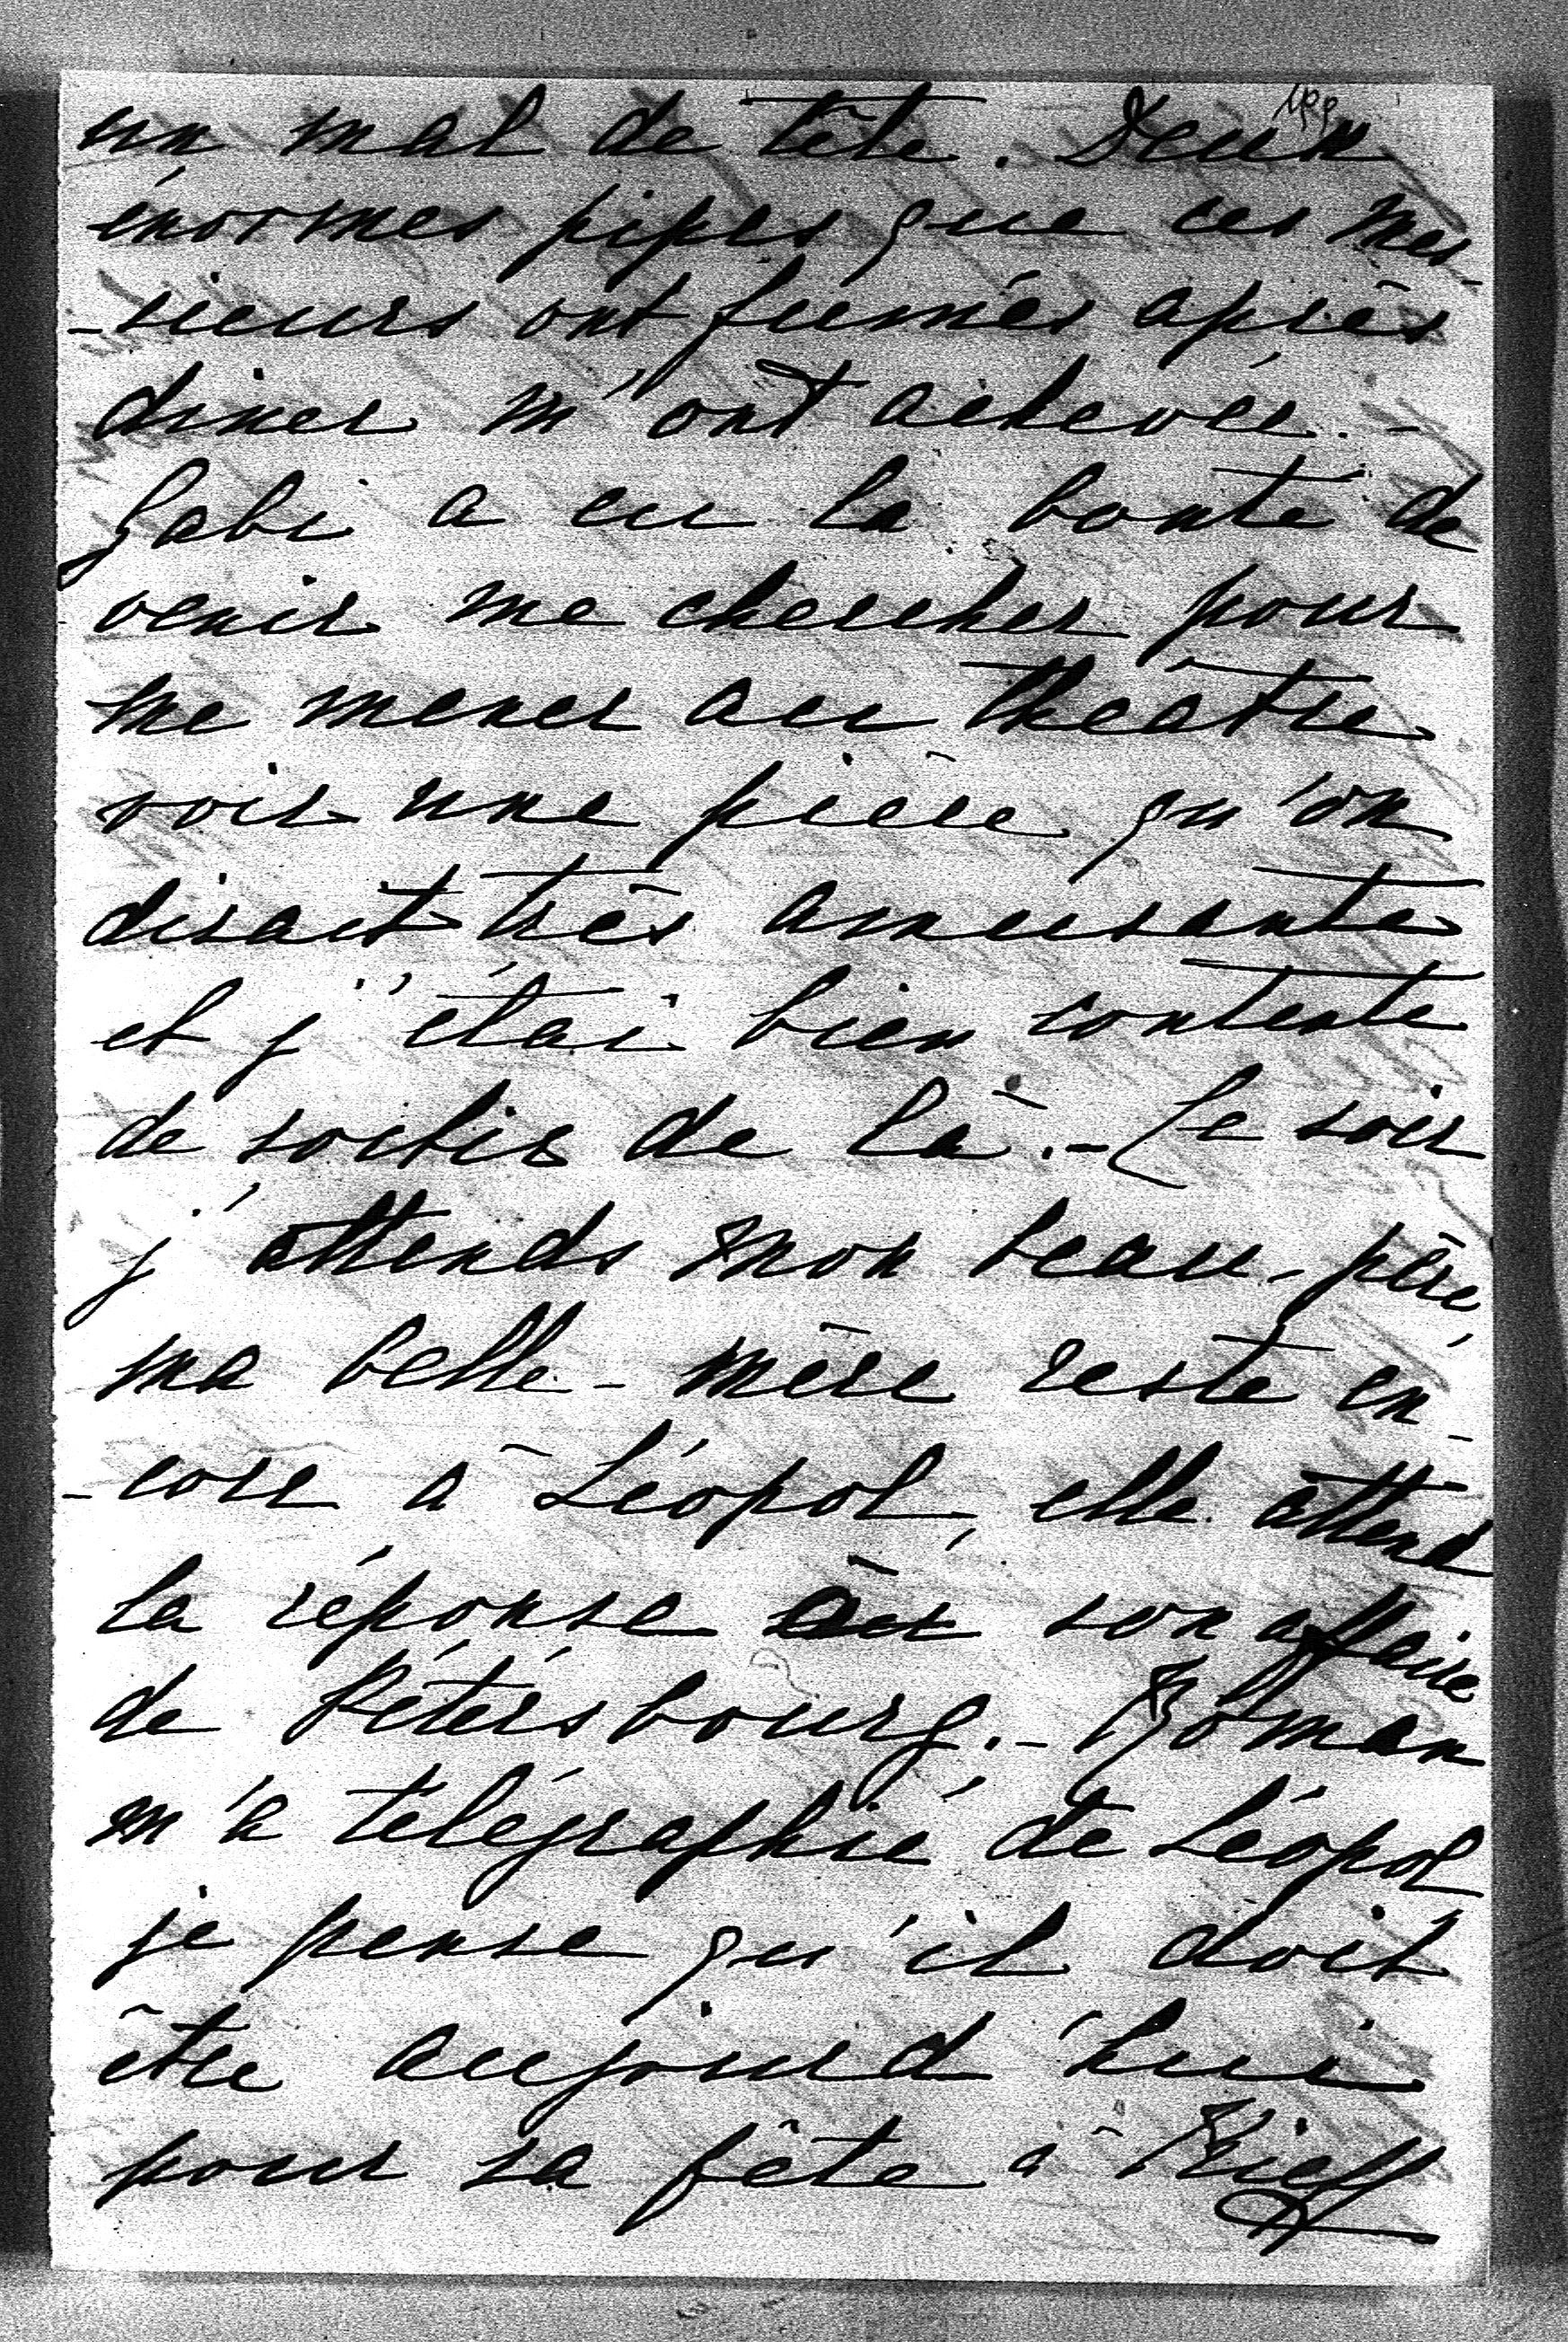 un mal de tête. Deux
énormes pipes que ces mes-
-sieurs ont fumés après
diner m'ont achevée. -
Gabi a eu la bonté de
venir me chercher pour
me mener au théâtre
voir une pièce qu'on
disait très amusante
et j'étai bien contente
de sortir de là. - Ce soir
j'attends mon beau-père,
ma belle-mère reste en-
-core à Léopol, elle attend
la réponse son affaire
de Pétersbourg. - Roman
m'a télégraphié de Léopol
je pense qu'il doit
être aujourd'hui
pour sa fête à Kieff